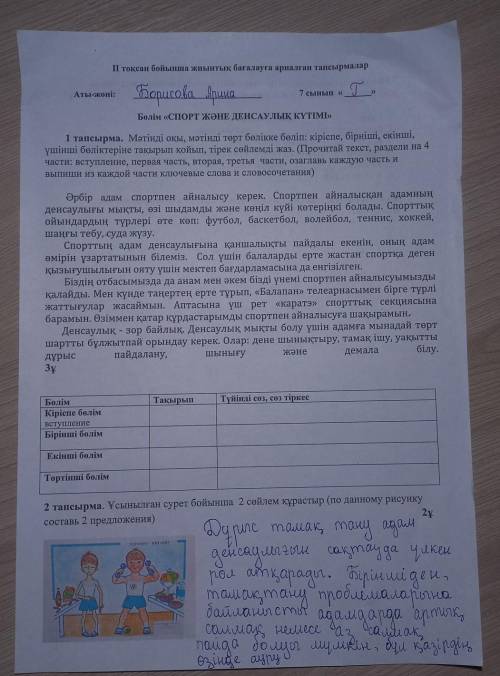 II тоқсан бойынша жиынтық бағалауға арналған тапсырмалар
Аты-жөні: Борисова Арина 7 сынып «Г»
Бөлім «СПОРТ ЖӘНЕ ДЕНСАУЛЫҚ КҮТІМІ»
1 тапсырма. Мәтінді оқы, мәтінді төрт бөлікке бөліп: кіріспе, бірніші, екінші,
үшінші бөліктеріне тақырып қойып, тірек сөйлемді жаз. (Прочитай текст, раздели на 4
части: вступление, первая часть, вторая, третья части, озаглавь каждую часть и
выпиши из каждой части ключевые слова и словосочетания)
Әрбір адам спортпен айналысу керек. Спортпен айналысқан адамның
денсаулығы мықты, өзі шыдамды және көңіл күйі көтеріңкі болады. Спорттық
ойындардың түрлері өте көп: футбол, баскетбол, волейбол, теннис, хоккей,
шаңғы тебу, суда жүзу.
Спорттың адам денсаулығына қаншалықты пайдалы екенін, оның адам
өмірін ұзартатынын білеміз. Сол үшін балаларды ерте жастан спортқа деген
қызығушылығын ояту үшін мектеп бағдарламасына да енгізілген.
Біздің отбасымызда да анам мен әкем бізді үнемі спортпен айналысуымызды
қалайды. Мен күнде таңертең ерте тұрып, «Балапан» телеарнасымен бірге түрлі
жаттығулар жасаймын. Аптасына үш рет «каратэ» спорттық секциясына
барамын. Өзіммен қатар құрдастарымды спортпен айналысуға шақырамын.
Денсаулық - зор байлық. Денсаулық мықты болу үшін адамға мынадай төрт
шартты бұлжытпай орындау керек. Олар: дене шынықтыру, тамақ ішу, уақытты
дұрыс пайдалану, шынығу және демала білу.
3ұ
Бөлім Тақырып Түйінді сөз, сөз тіркес
Кіріспе бөлім
вступление
Бірінші бөлім
Екінші бөлім
Төртінші бөлім
2 тапсырма. Ұсынылған сурет бойынша 2 сөйлем құрастыр (по данному рисунку
составь 2 предложения)
2ұ
Дұрыс тамақ тану адам
денсаулығын сақтауда үлкен
рөл атқарады. Біріншіден,
тамақтану проблемаларына
байланысты адамдарда артық
салмақ немесе аз салмақ
пайда болуы мүмкін, бұл қазірдің
өзінде ауру